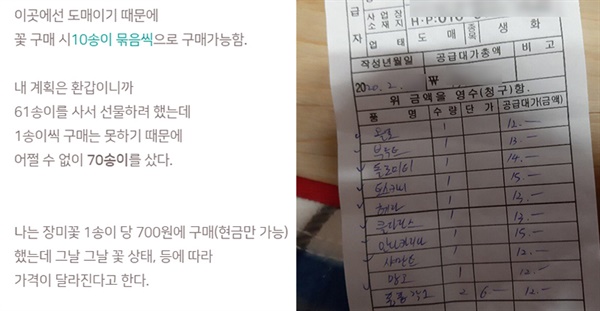 이곳에선 도매이기 때문에
꽃 구매 시10송이 묶음씩으로 구매가능함.
내 계획은 환갑이니까
61송이를 사서 선물하려 했는데
1송이씩 구매는 못하기 때문에
어쩔 수 없이 70송이를 샀다.
나는 장미꽃 1송이 당 700원에 구매(현금만 가능)
했는데 그날 그날 꽃 상태, 등에 따라
가격이 달라진다고 한다.
급
자
사업장
소재지
H·P:010
업태
도매
종목
생화
작성년월일
공급대가총액
비고
2020. 2.
₩
위 금액을 영수(청구)함.
품명
수량
단가
공급대가(금액)
1
12.-
1
13.-
1
14.-
1
15.-
1
13.-
1
13.-
1
15.-
1
12.-
1
12.-
2
6-
12.-